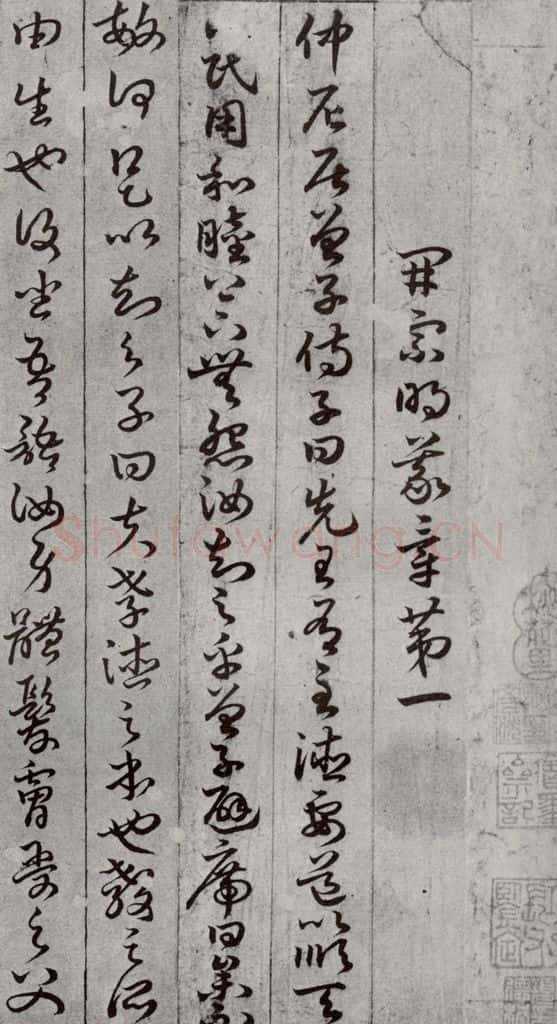 開宗明義章第一
仲尼居曾子侍子曰先王有至德要道以順天
民用和睦上下無怨汝知之乎曾子避席曰參不
敏何足以知之子曰夫孝德之本也教之所
由生也復坐吾語汝身體髮膚受之父
Shufawang.CN